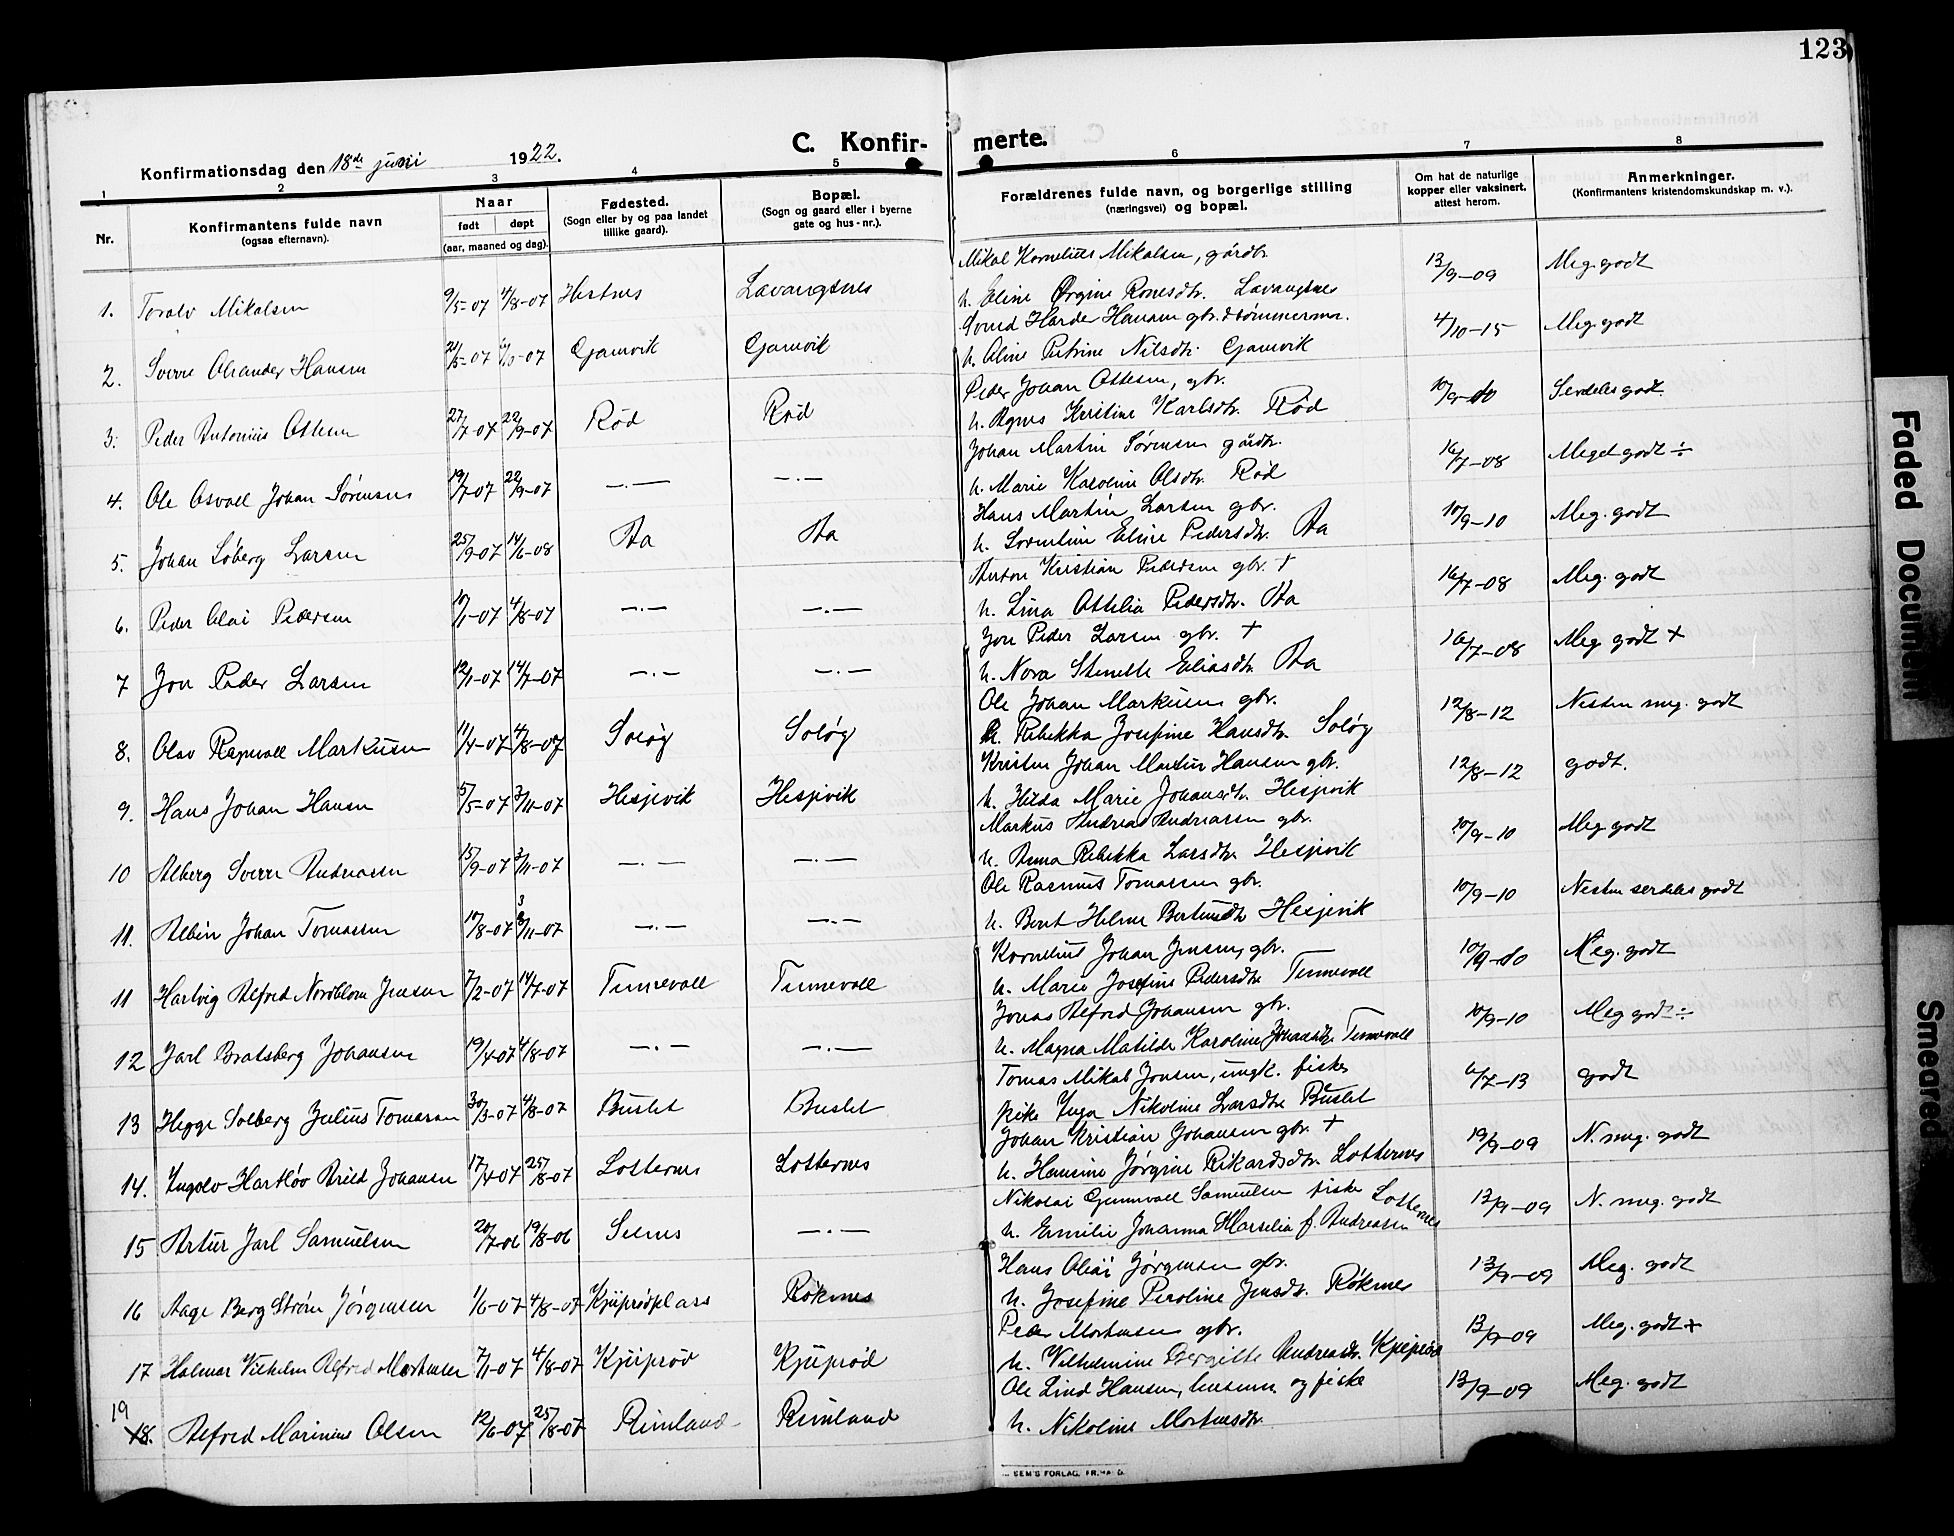 123
C. Konfir- merte.
Konfirmationsdag den 18de juni 1922.
1 2 3 4 5 6 7 8
Nr.
Konfirmantens fulde navn
(ogsaa efternavn).
Naar
født døpt
(aar, maaned og dag).
Fødested.
(Sogn eller by og paa landet
tillike gaard).
Bopæl.
(Sogn og gaard eller i byerne
gate og hus-nr.).
Forældrenes fulde navn, og borgerlige stilling
(næringsvei) og bopæl.
Om hat de naturlige
kopper eller vaksinert.
attest herom.
Anmerkninger.
(Konfirmantens kristendomskundskap m. v.).
Mikal Kornelius Mikalsen, gårdbr.
1. Toralv Mikalsen 9/5-07 4/8-07 Hestnes Lavangsnes
u. Eline Ørgine Ronesdtr. Lavangsnes 13/9-09 Meg. godt
Harder Hansen gbr. & tømmerm.
2. Sverre Hansen Gamvik Gamvik
u. Aline Petrine Nilsdtr. Gamvik 4/10-15 Meg. godt
Peder Johan Ottesen, gbr.
3. Peder Antonius Ottesen 27/7-07 22/9-07 Rød Rød
u. Agnes Kristine Karlsdtr. Rød 10/9-10 Serdeles godt.
Johan Martin Sørensen gårdbr.
4. Ole Osvall Johan Sørensen 19/7-07 22/9-07 —.— —.—
u. Marie Karoline Olsdtr. Rød 16/7-08 Meget godt ÷
Hans Martin Larsen gbr.
5. Johan Søberg Larsen 25/9-07 14/6-08 Aa Aa
u. Eline Pedersdtr. Aa 10/9-10 Meg. godt
Anton Kristian Pedersen gbr. +
6. Peder Olai Pedersen 10/1-07 4/8-07 —.— —.—
u. Lina Ottilia Pedersdtr. Aa 16/7-08 Meg. godt
Jon Peder Larsen gbr. +
7 Jon Peder Larsen 12/1-07 14/7-07 —.— —.—
u. Nora Stinette Eliasdtr. Aa 16/7-08 Meg godt +
Ole Johan Markusen gbr.
8. Olav Ragnvall Markusen 11/4-07 4/8-07 Soløy Soløy
u. Rebekka Josefine Hansdtr. Soløy 12/8-12 Nesten meg. godt
Kristen Johan Martin Hansen gbr.
9. Hans Johan Hansen 5/5-07 3/11-07 Hesjevik Hesjevik
u. Hilda Marie Johansdtr. Hesjevik 12/8-12 godt.
Markus Andreas Andreassen gbr.
10 Alberg Sverre Andreassen 15/9-07 3/11-07 —.— —.—
u. Anna Rebekka Larsdtr. Hesjevik 10/9-10 Meg godt
Ole Rasmus Tomassen gbr.
11. Albin Johan Tomassen 17/8-07 3/11-07 —.— —.—
u. Berit Helene Hesjevik 10/9-10 Nesten serdeles godt
Kornelius Johan Jensen, gbr. —
11 Hartvig Alfred Nordblom Jensen 7/2-07 14/7-07 Tennevoll Tennevoll
u. Marie Josefine Pedersdtr. Tennevoll 10/9-10 Meg. godt
Jonas Alfred Johansen gbr.
12 Jarl Bratsberg Johansen 19/4-07 4/8-07 —.— —.—
u. Magna Matilde Karoline Johansdtr. Tennevoll 10/9-10 Meg godt ÷
Tomas Mikal Jonsen, ungk. fisker
13 Hegge Solberg Julius Tomassen 30/3-07 4/8-07 Buslet Buslet
pike Inga Nikoline Larsdtr. Buslet 6/7-13 godt
Johan Kristian Johansen gbr. +
14. Ingolv Hartløv Arild Johansen 17/4-07 25/8-07 Lotternes Lotternes
u. Hansine Jørgine Rikardsdtr. Lotternes 19/9-09 N. meg. godt
Nikolai Gunnvall Samuelsen fisker Lotternes
15 Artur Jarl Samuelsen 20/7-06 19/8-06 Selnes —.—
u. Emilie Johanna Marselia f. Andreassen 13/9-09 N. meg. godt
Hans Olai Jørgensen gbr.
16 Aage Berg Strøm Jørgensen 1/6-07 4/8-07 Kjeiprødplass Røkenes
u. Josefine Peroline Jensdtr. Røkenes 13/9-09 Meg. godt
Peder Mortensen gbr.
17 Halmar Vilhelm Alfred Mortensen 7/1-07 4/8-07 Kjeiprød Kjeiprød
u. Vilhelmine Bergitte Andreasdtr. Kjeiprød 13/9-09 Meg. godt +
Ole Lind Hansen, husmann og fisker
19
18. Alfred Marinius Olsen 12/6-07 25/8-07 Rimland Rimland
u. Nikoline Mortensdtr. 13/9-09 Meg. godt
SEM'S FORLAG, FR.HALD.
Faded Document
Smeared